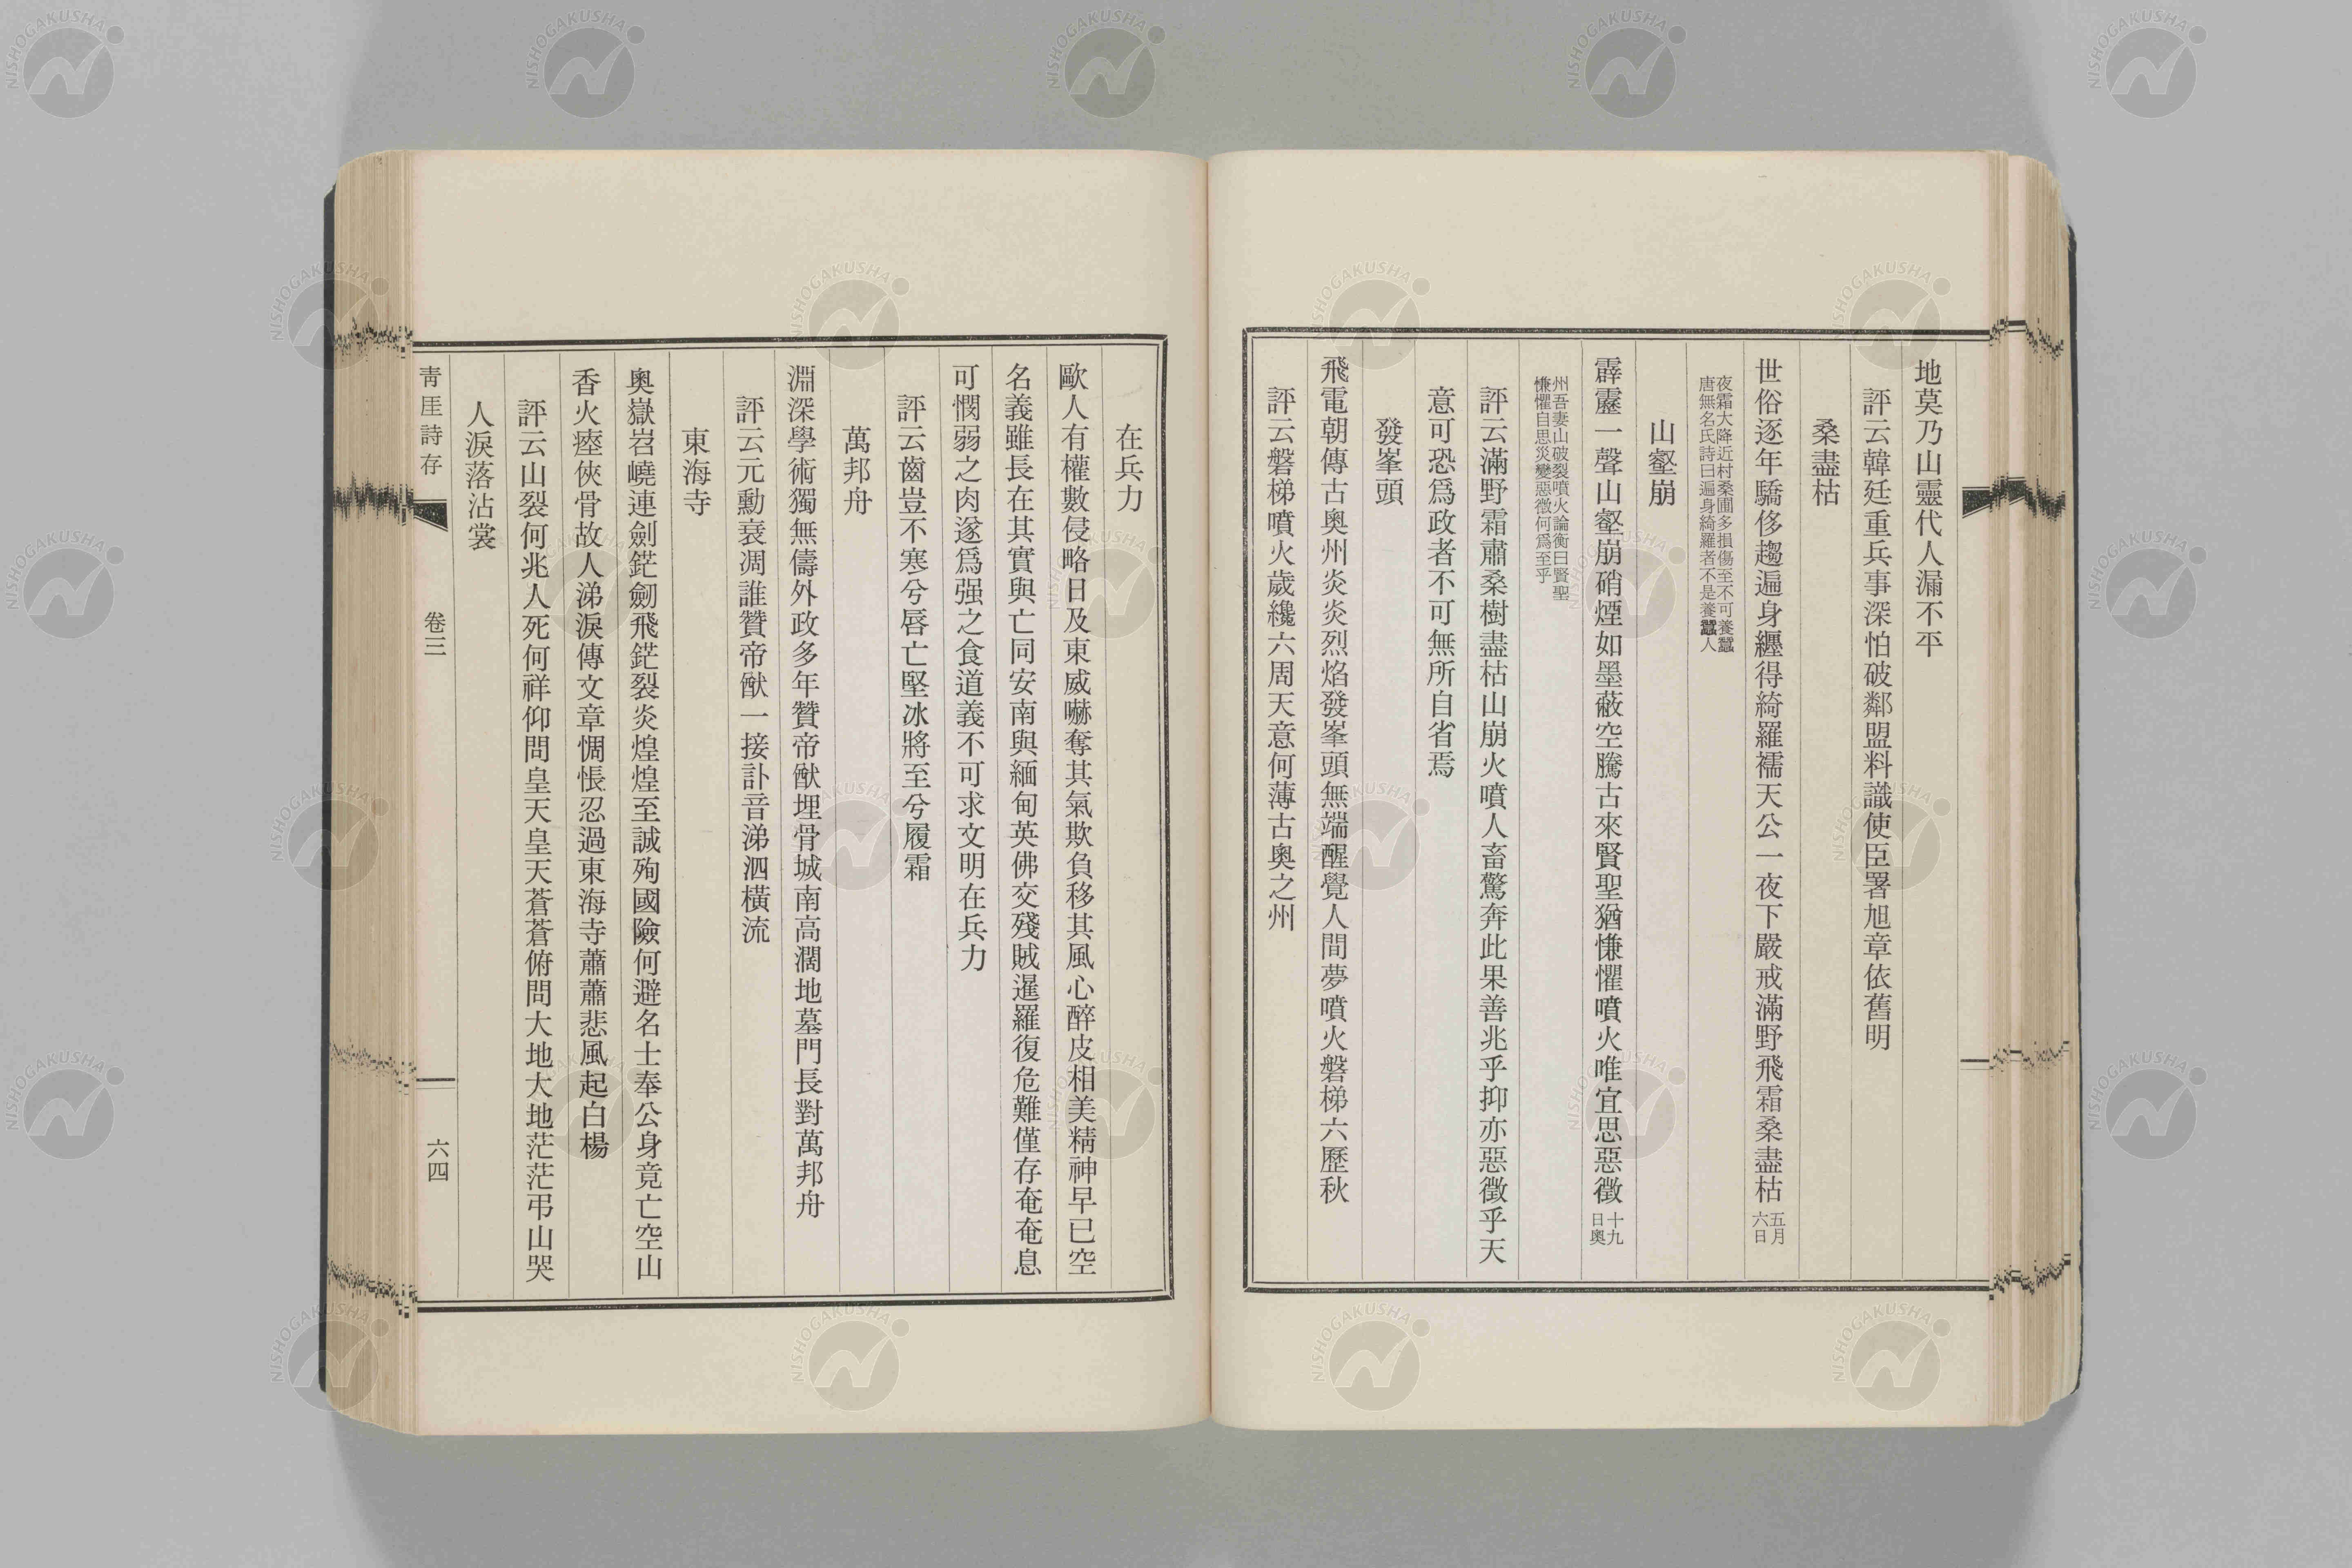 地莫乃山靈代人漏不平
評云韓廷重兵事深怕破鄰盟料識使臣署旭章依舊明
桑盡枯
世俗逐年驕侈趨遍身纏得綺羅襦天公一夜下嚴戒滿野飛霜桑盡枯五月六日
夜霜大降近村桑圃多損傷至不可養蠶
唐無名氏詩曰遍身綺羅者不是養蠶人
山壑崩
霹靂一聲山壑崩硝煙如墨蔽空騰古來賢聖猶慊懼噴火唯宜思惡徵十九日奧
州吾妻山破裂噴火論衡曰賢聖
慊懼自思災變惡徵何爲至乎
評云滿野霜肅桑樹盡枯山崩火噴人畜驚奔此果善兆乎抑亦惡徵乎天
意可恐爲政者不可無所自省焉
發峯頭
飛電朝傳古奧州炎炎烈焰發峯頭無端醒覺人間夢噴火磐梯六歷秋
評云磐梯噴火歲纔六周天意何薄古奧之州
在兵力
歐人有權數侵略日及東威嚇奪其氣欺負移其風心醉皮相美精神早已空
名義雖長在其實與亡同安南與緬甸英佛交殘賊暹羅復危難僅存奄奄息
可憫弱之肉遂爲强之食道義不可求文明在兵力
評云齒豈不寒兮唇亡堅冰將至兮履霜
萬邦舟
淵深學術獨無儔外政多年贊帝猷埋骨城南高濶地墓門長對萬邦舟
評云元勳衰凋誰贊帝猷一接訃音涕泗橫流
東海寺
奧嶽岧嶢連劍鋩劒飛鋩裂炎煌煌至誠殉國險何避名士奉公身竟亡空山
香火瘞俠骨故人涕淚傳文章惆悵忍過東海寺蕭蕭悲風起白楊
評云山裂何兆人死何祥仰問皇天皇天蒼蒼俯問大地大地茫茫弔山哭
人淚落沾裳
靑厓詩存
卷三
六四
NISHOGAKUSHA